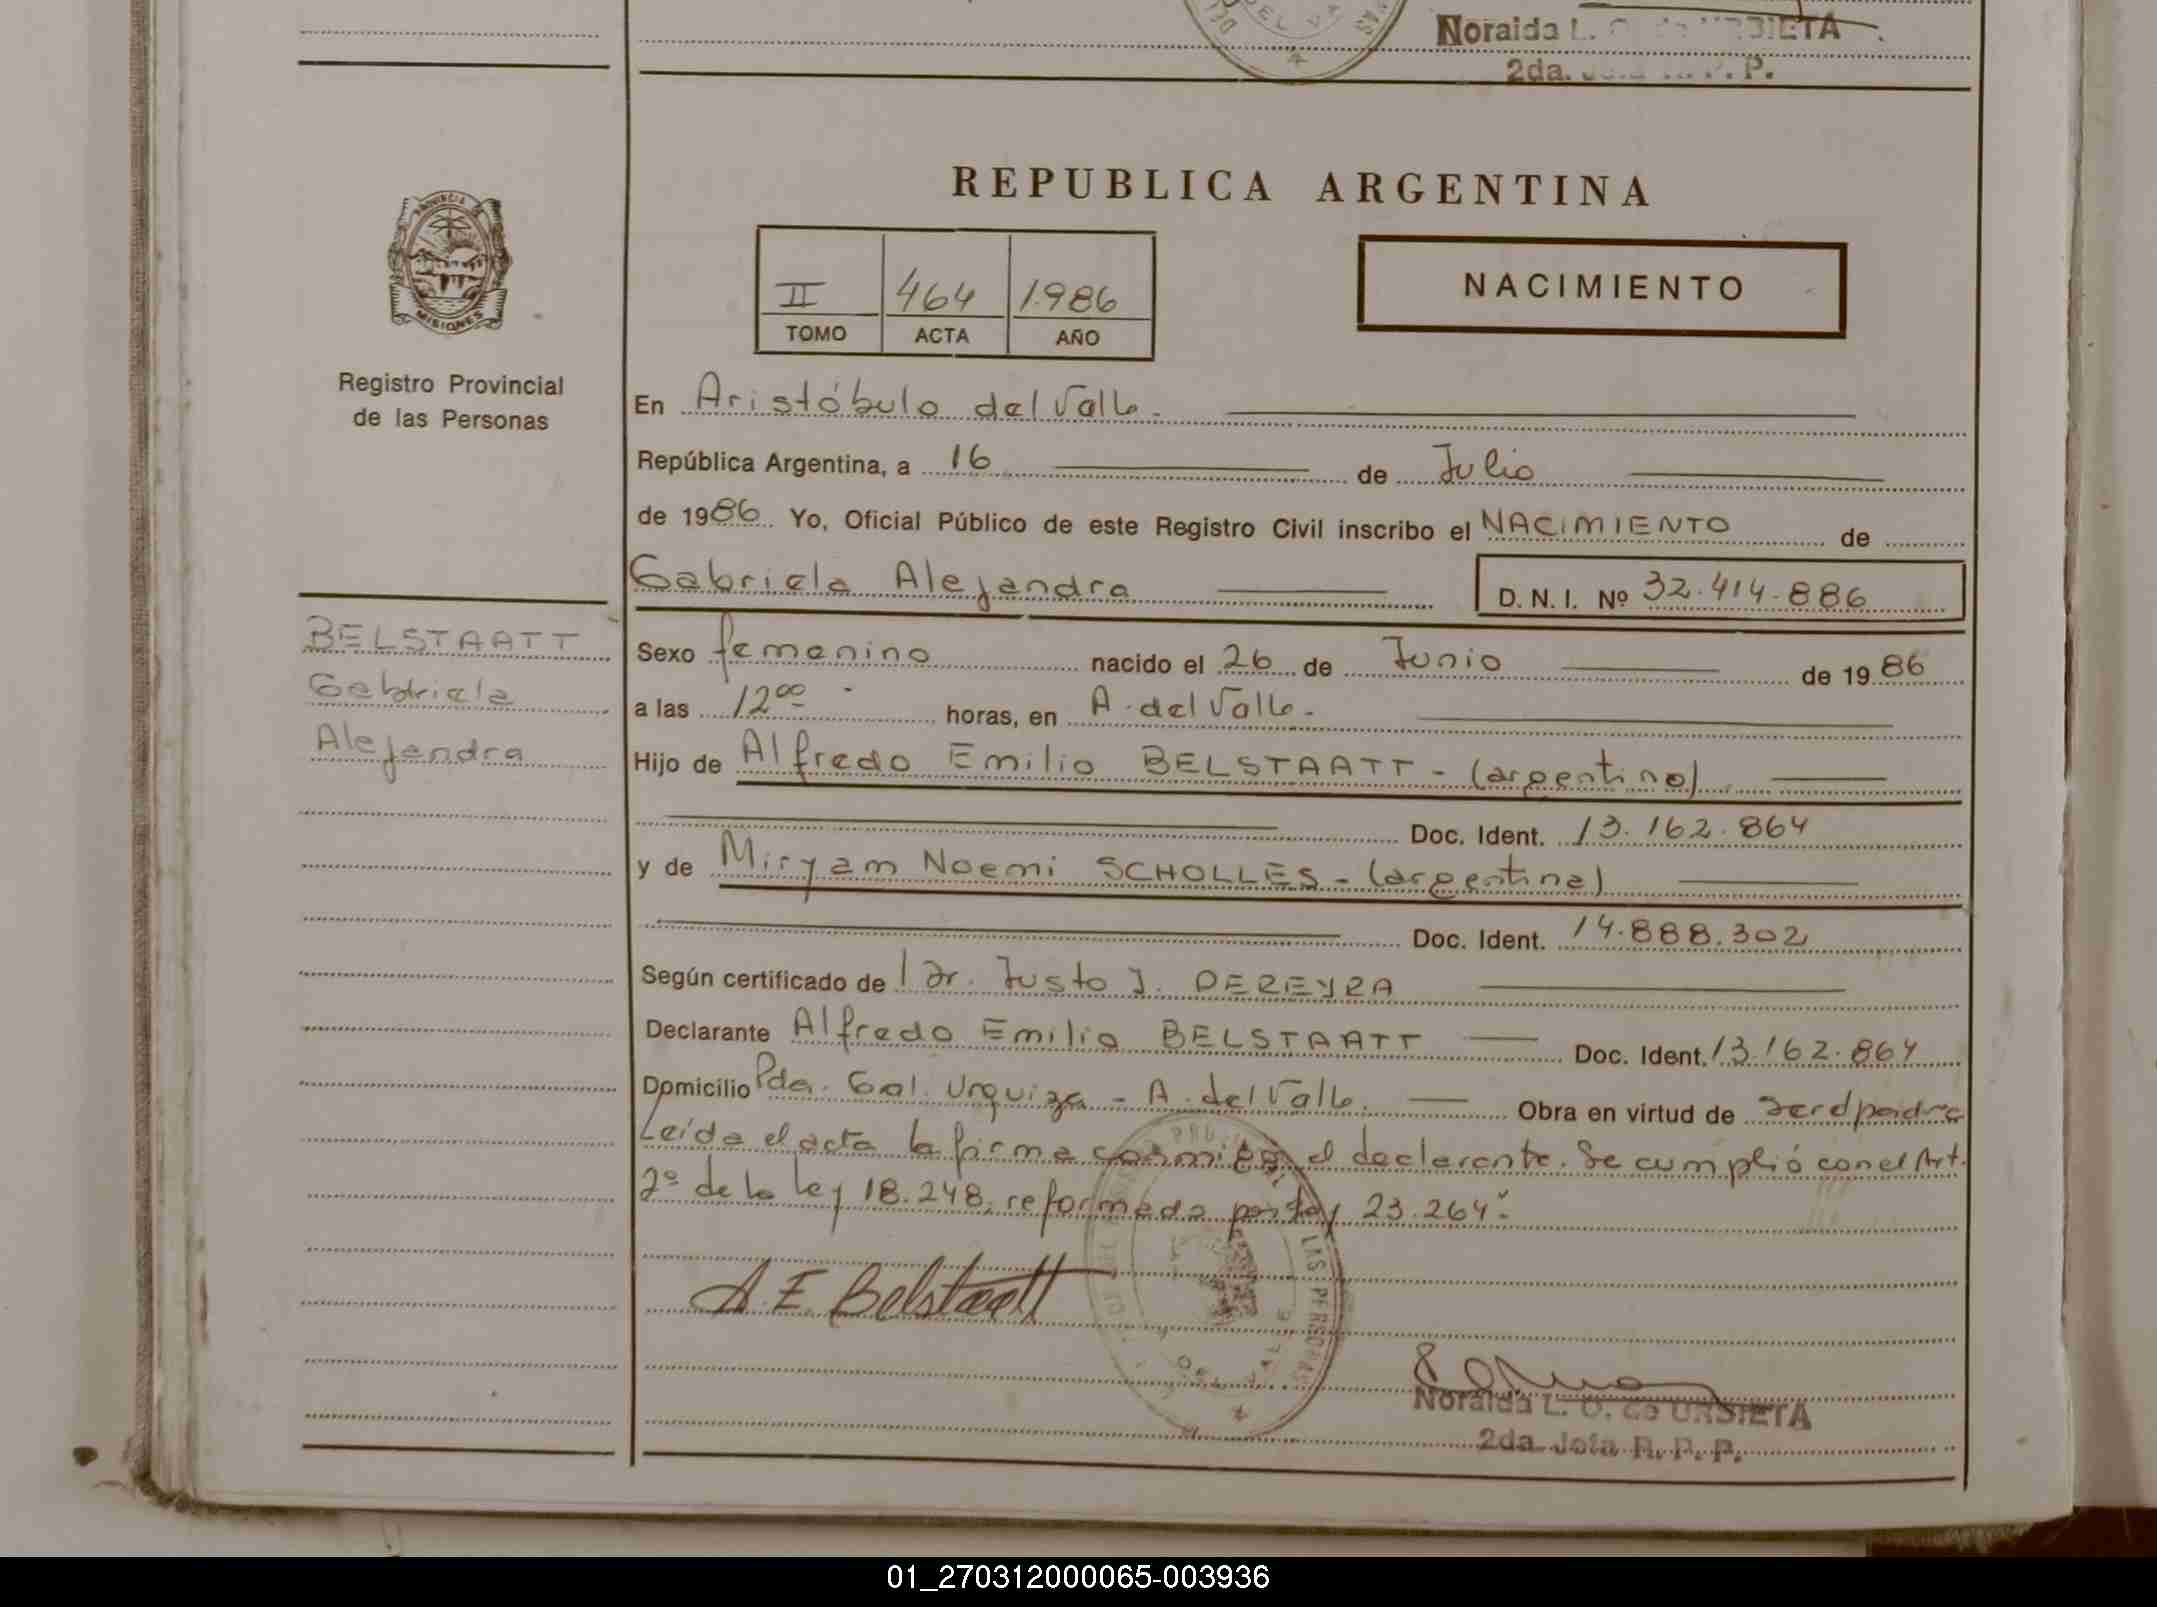 Noraida L. URBIETA
2da. P. P.
REPUBLICA ARGENTINA
PROVINCIA DE
MISIONES
II 464 1.986
TOMO ACTA AÑO
NACIMIENTO
Registro Provincial
de las Personas
En Aristóbulo del Valle.
República Argentina, a 16 de Julio
de 1986. Yo, Oficial Público de este Registro Civil inscribo el NACIMIENTO de
Gabriela Alejandra D. N. I. Nº 32.414.886
BELSTAATT
Gabriela
Alejandra
Sexo femenino nacido el 26 de Junio de 1986
a las 12⁰⁰ horas, en A. del Valle.
Hijo de Alfredo Emilio BELSTAATT - (argentino)
Doc. Ident. 13.162.864
y de Miryam Noemi SCHOLLES - (argentina)
Doc. Ident. 14.888.302
Según certificado de Dr. Justo J. PEREYRA
Declarante Alfredo Emilio BELSTAATT Doc. Ident. 13.162.864
Domicilio Pda. Gal. Urquiza - A. del Valle. Obra en virtud de
Leída el acta la firma conmigo el declarante. Se cumplió con el Art.
2º de la Ley 18.248, reformada por Ley 23.264.
A. E. Belstaatt
LAS PERSONAS
DEL VALLE
Noraida L. O. de URBIETA
2da. Jefa R. P. P.
01_270312000065-003936